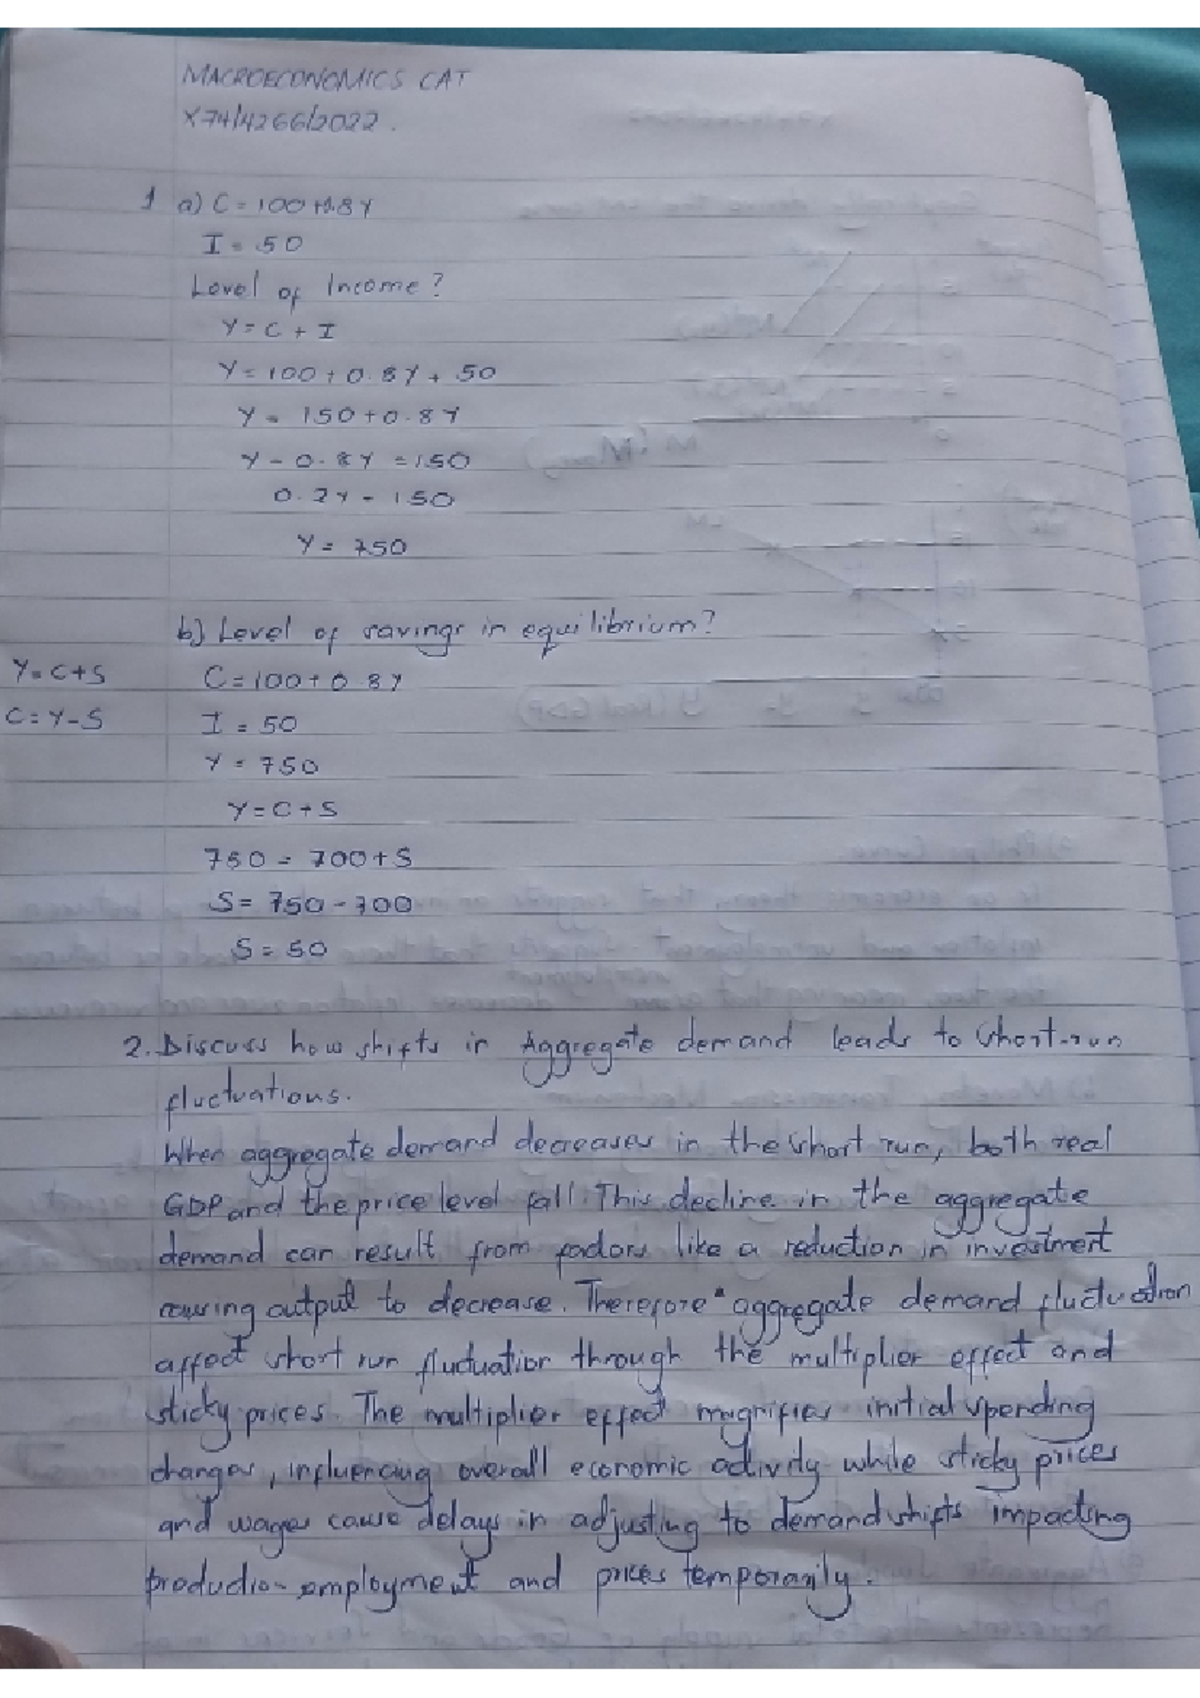 MACROECONOMICS CAT
X74/4266/2022.
1 a) C = 100 + 0.8Y
I = 50
Level of Income?
Y = C + I
Y = 100 + 0.8Y + 50
Y = 150 + 0.8Y
Y - 0.8Y = 150
0.2Y = 150
Y = 750
b) Level of savings in equilibrium?
Y = C + S
C = Y - S
C = 100 + 0.8Y
I = 50
Y = 750
Y = C + S
750 = 700 + S
S = 750 - 700
S = 50
2. Discuss how shifts in Aggregate demand leads to short-run
fluctuations.
When aggregate demand decreases in the short run, both real
GDP and the price level fall. This decline in the aggregate
demand can result from factors like a reduction in investment
causing output to decrease. Therefore aggregate demand fluctuation
affect short run fluctuation through the multiplier effect and
sticky prices. The multiplier effect magnifies initial spending
changes, influencing overall economic activity while sticky prices
and wages cause delays in adjusting to demand shifts impacting
production employment and prices temporarily.